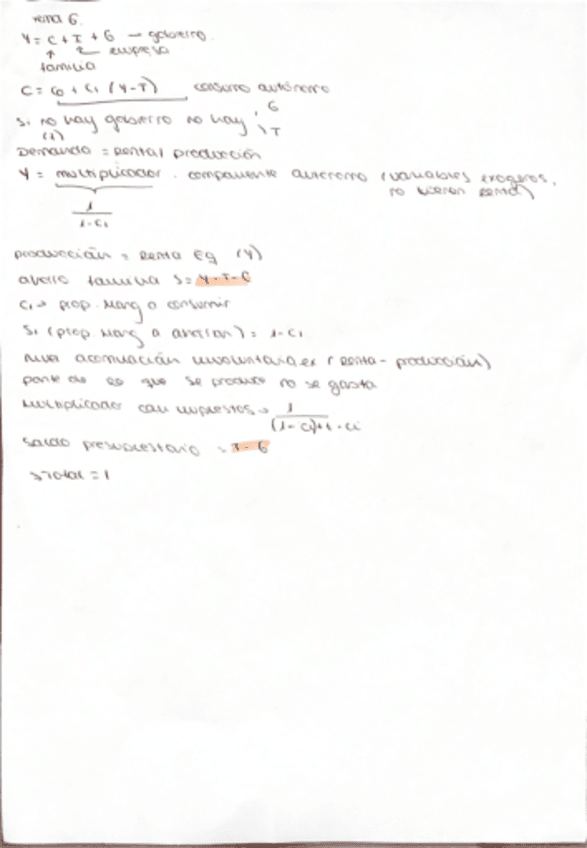 Tema 6.
Y = C + I + G — gobierno.
↑ empresa
familia
C = C0 + C1 (Y-T) consumo autónomo
Si no hay gobierno no hay G
(1) T
Demanda = Renta / producción
Y = multiplicador . componente autónomo (variables exógenas,
no tienen renta)
1
1-C1
producción = Renta Eq (Y)
ahorro familia S = Y-T-C
C1 → prop. Marg a consumir
S1 (prop. Marg a ahorrar) = 1-C1
nivel acomulación involuntaria ex (Renta - producción)
parte de lo que se produce no se gasta
Multiplicador con impuestos → 1
(1-C1)+t.C1
Saldo presupuestario = T-G
STotal = I